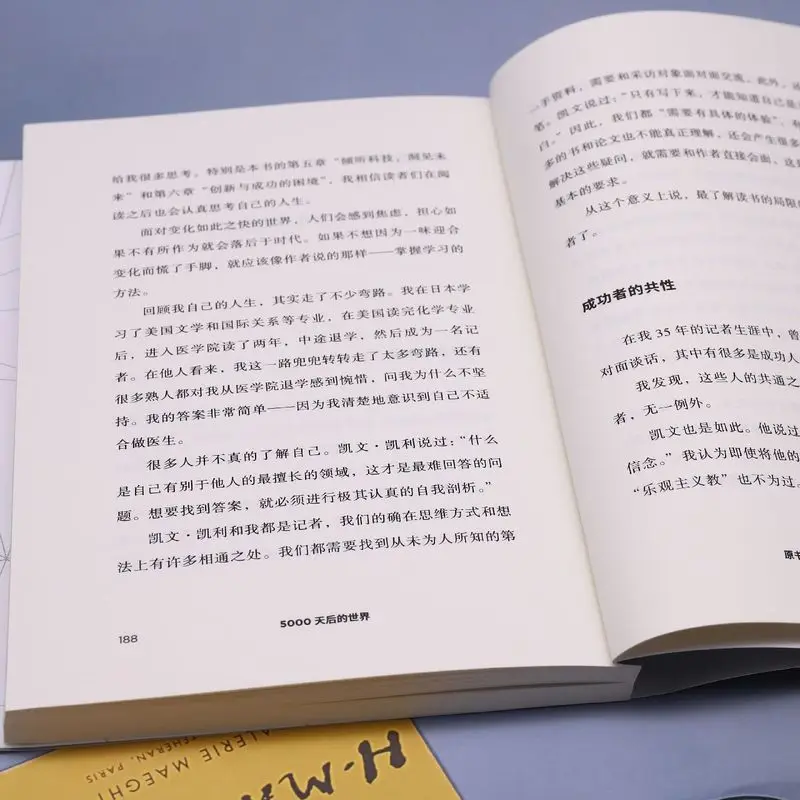 给我很多思考。特别是本书的第五章“倾听科技，洞见未
来”和第六章“创新与成功的困境”，我相信读者们在阅
读之后也会认真思考自己的人生。
面对变化如此之快的世界，人们会感到焦虑，担心如
果不有所作为就会落后于时代。如果不想因为一味迎合
变化而慌了手脚，就应该像作者说的那样——掌握学习的
方法。
回顾我自己的人生，其实走了不少弯路。我在日本学
习了美国文学和国际关系等专业，在美国读完化学专业
后，进入医学院读了两年，中途退学，然后成为一名记
者。在他人看来，我这一路兜兜转转走了太多弯路，还有
很多熟人都对我从医学院退学感到惋惜，问我为什么不坚
持。我的答案非常简单——因为我清楚地意识到自己不适
合做医生。
很多人并不真的了解自己。凯文·凯利说过：“什么
是自己有别于他人的最擅长的领域，这才是最难回答的问
题。想要找到答案，就必须进行极其认真的自我剖析。”
凯文·凯利和我都是记者，我们的确在思维方式和想
法上有许多相通之处。我们都需要找到从未为人所知的第
188
5000 天后的世界
一手资料，需要和采访对象面对面交流。此外，还
笔。凯文说过：“只有写下来，才能知道自己是
白。”因此，我们都“需要有具体的体验”，有
多的书和论文也不能真正理解，还会产生很多
解决这些疑问，就需要和作者直接会面，这是
基本的要求。
从这个意义上说，最了解读书的局限
者了。
成功者的共性
在我 35 年的记者生涯中，曾
对面谈话，其中有很多是成功人
我发现，这些人的共通之
者，无一例外。
凯文也是如此。他说过
信念。”我认为即使将他的
“乐观主义教”也不为过。
原书
H·M
VALERIE MAEGHT
TEHERAN, PARIS